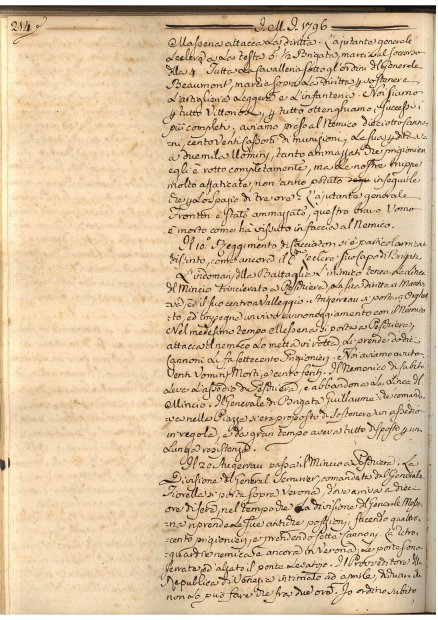 214
1796
Massena attacca la diritta. L'ajutante generale
Leclerc a la testa 5 1/2 Brigata, marcia al soccorso
della 4. Tutta la Cavalleria sotto gl'ordini del Generale
Beaumont, marcia sopra la diritta, e sostenere
l'artiglieria leggera e l'infanteria. Noi siamo
tutto Vittoriosi, tutto ottenghiamo, successi i
più completi, aviamo preso al Nemico dieciotto canno=
ni, cento venti cassoni di munizioni, la sua perdita va
a due mila Uomini, tanto ammassati che prigionieri
egli è rotto completamente, ma le nostre truppe
molto affaticate, non anno potuto inseguile
che lo spazio di tre ore. L'ajutante generale
Frontin è stato ammazzato, questo bravo Uomo
è morto come ha vissuto in faccia al Nemico.
Il 10. Reggimento di Cacciatori si è particolarmen=
distinto, come ancora il suo capo di Brigata.
L'indoman della Battaglia l'inimico tenea la linea
del Mincio trincierato a Peschiera, la sua diritta a Manto=
va, ed il suo centro a Valleggio. Augereau si porta a
ed impegna un vivo cannonggiamento con il Nemico
Nel medesimo tempo Massena si porta a Peschiera,
attacca il nemico lo mette in rotta, le prende dodici
Cannoni, le fa settecento Prigionieri. Noi aviamo avuto
Venti Uomini Morti, e cento feriti. Il Nemico di subito
leva l'assedio di Peschiera, e abbandona la linea del
Mincio. Il Generale di Brigata Guillaume che comanda=
va nella Piazza s'era proposto di sostenere un assedio
in regola, e da gran tempo aveva tutto disposto un
lunga resistenza.
Il 20 Augereau passa il Mincio a Peschiera. La
Divisione del General Serurier, comandata dal Generale
Fiorella si porta sopra Verona, dove arriva a dieci
ore di sera, nel tempo che la divisione del Generale Masse=
na riprende le sue antiche possizioni, facendo quattro
cento prigionieri, e prendendo sette cannoni. La retro=
guardia nemica era ancora in Verona, le porte sono
ferrate ed alzati il ponte levatojo. Il Proveditore della
Repubblica di Venezia intimato ad aprile, dichiara di
non lo può fare che fra due ore. Io ordino subito